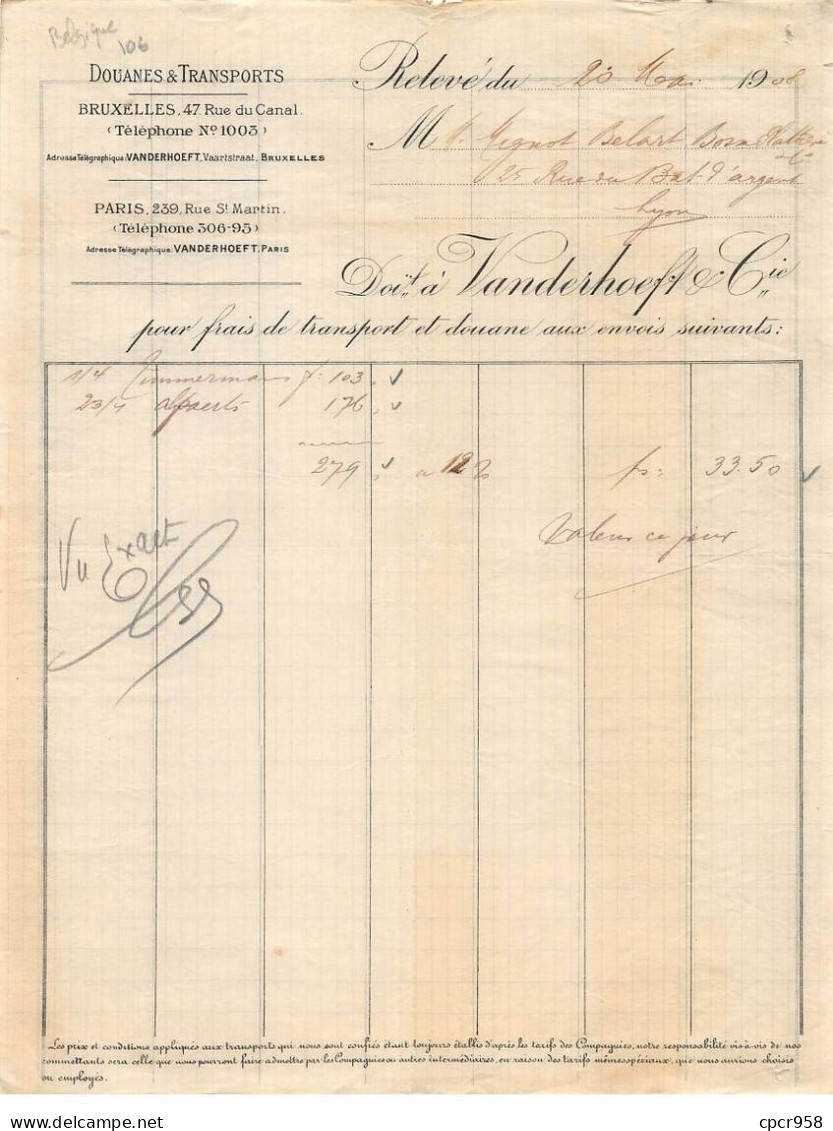 Belgique
106
DOUANES & TRANSPORTS
BRUXELLES, 47 Rue du Canal.
(Téléphone Nº 1003)
Adresse Télégraphique: VANDERHOEFT, Vaartstraat, BRUXELLES
PARIS, 239, Rue St Martin.
(Téléphone 306-95)
Adresse Télégraphique: VANDERHOEFT, PARIS
Relevé du 20 Mai 1908
M Mignot Belart Bosn
25 Rue du Bat d'argent
Lyon
Doit à Vanderhoeft & Cie
pour frais de transport et douane aux envois suivants:
1/4 Zimmermans f: 103,
23/4 Alpaerts 176,
279, a 12% fs: 33.50
Valeur ce jour
Vu Exact
Les prix et conditions appliqués aux transports qui nous sont confiés étant toujours établis d'après les tarifs des Compagnies, notre responsabilité vis-à-vis de nos
commettants sera celle que nous pourront faire admettre par les Compagnies ou autres intermédiaires, en raison des tarifs mêmes spéciaux, que nous aurions choisis
ou employés.
cpcr958